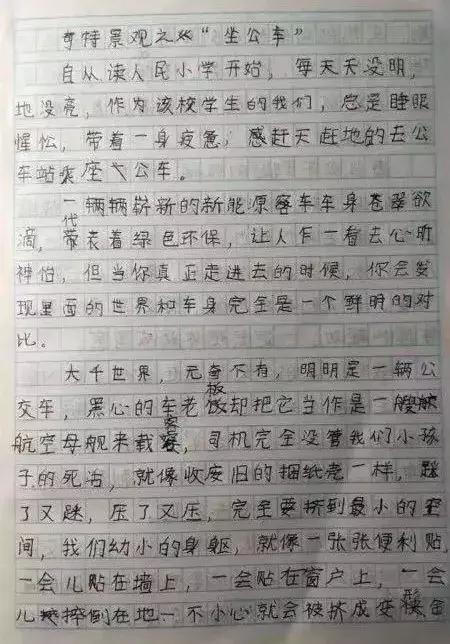 奇特景观之 "坐公车"
自从读人民小学开始，每天天没明，
地没亮，作为该校学生的我们，总是睡眼
惺忪，带着一身疲惫，感赶天赶地的去公
车站乘座公车。
一辆辆崭新的新能源客车车身苍翠欲
滴，代表着绿色环保，让人乍一看去心旷
神怡，但当你真正走进去的时候，你会发
现里面的世界和车身完全是一个鲜明的对
比。
大千世界，无奇不有，明明是一辆公
交车，黑心的车老板却把它当作是一艘
航空母舰来载客，司机完全没管我们小孩
子的死活，就像收废旧的捆纸壳一样，踩
了又踩，压了又压，完全要挤到最小的空
间，我们幼小的身躯，就像一张张便利贴，
一会儿贴在墙上，一会贴在窗户上，一会
儿摔倒在地一不小心就会被挤成变形金